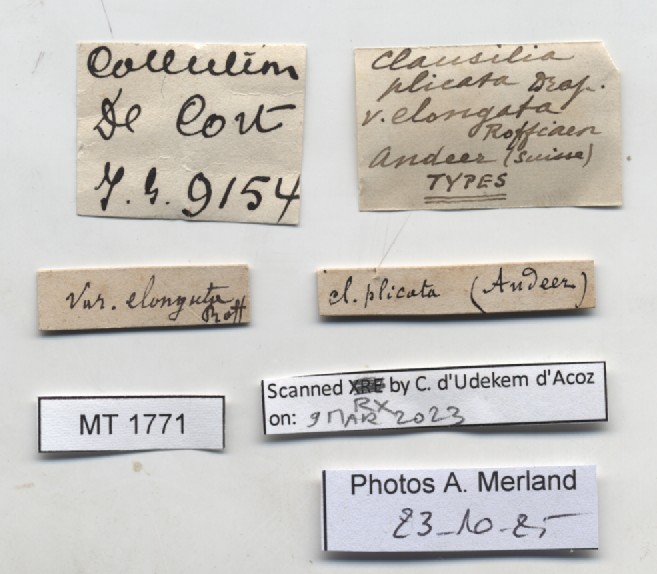 Collection
De Cort
I.G. 9154
Clausilia
plicata Drap.
v. elongata
Roffiaen
Andeer (Suisse)
TYPES
Var. elongata
Roff
cl. plicata (Andeer)
MT 1771
Scanned XRE by C. d'Udekem d'Acoz
RX
on: 9 MAR 2023
Photos A. Merland
23-10-25